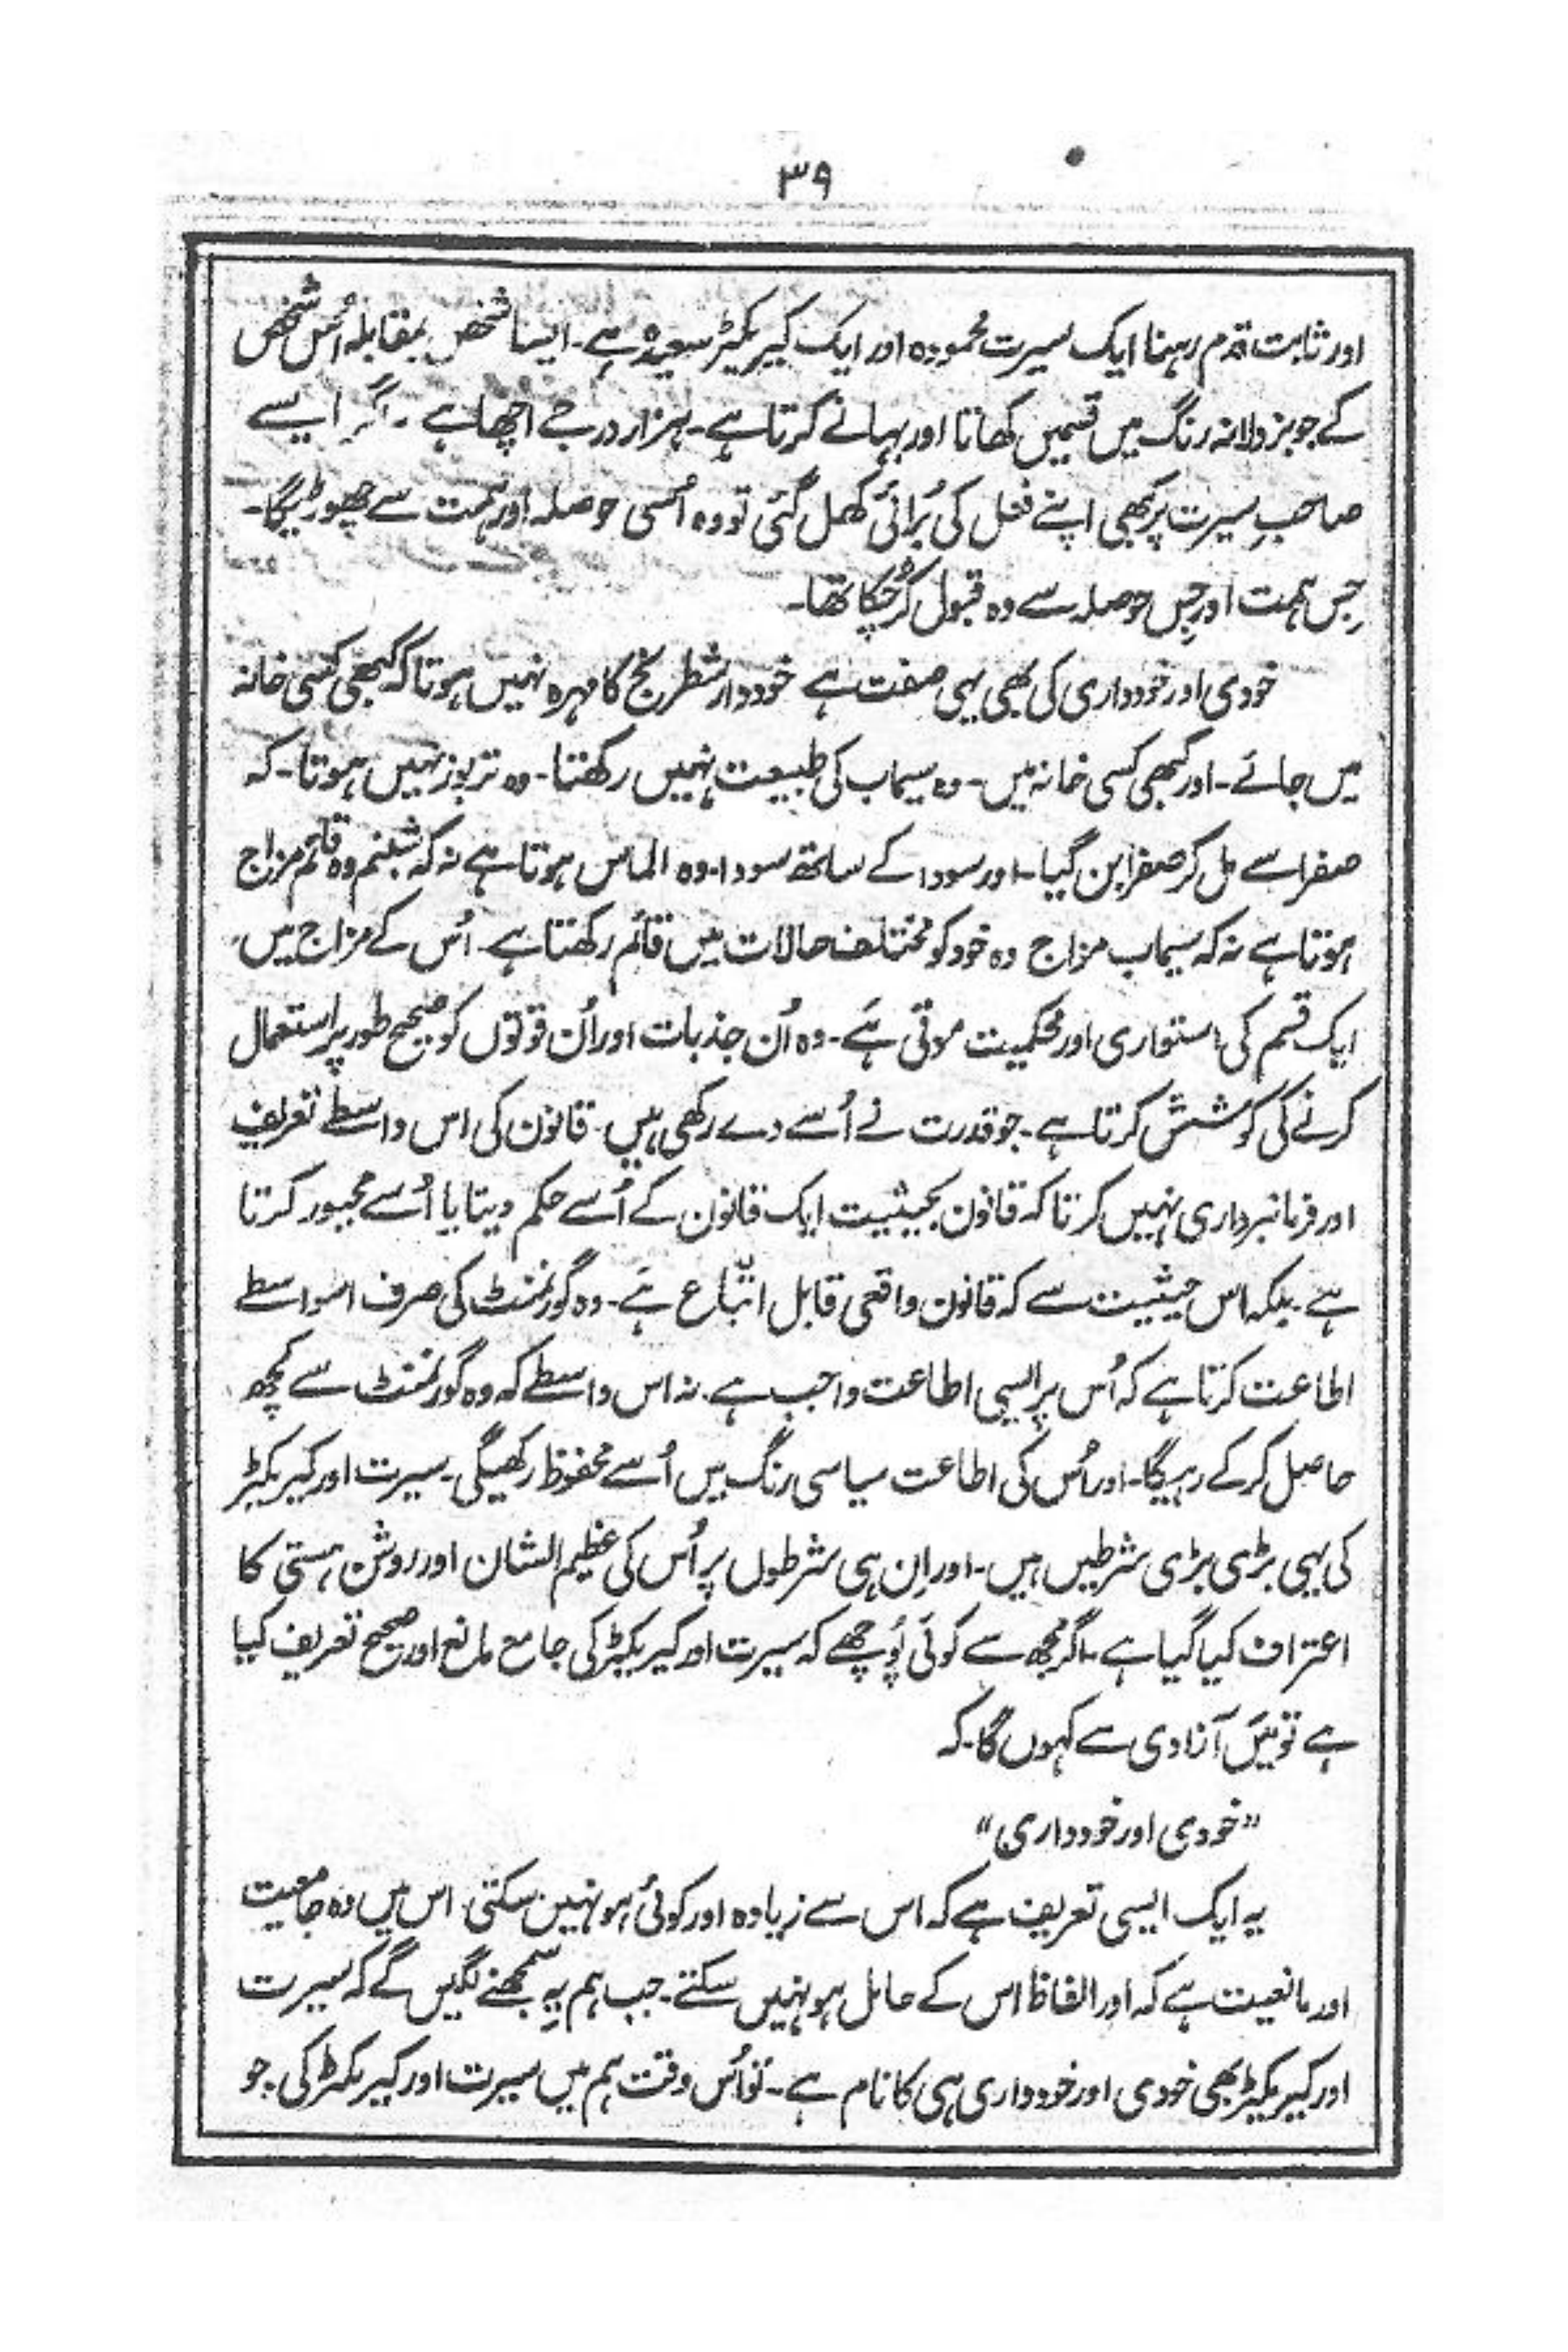 ۳۹
اور ثابت قدم رہنا ایک سیرت محمودہ اور ایک کیریکٹر سعیدہ ہے۔ ایسا شخص بمقابلہ اُس شخص
کے جو بزدلانہ رنگ میں قسمیں کھاتا اور بہانے کرتا ہے۔ ہزار درجے اچھا ہے ۔ اگر ایسے
صاحبِ سیرت پر بھی اپنے فعل کی بُرائی کھل گئی تو وہ اُسی حوصلہ اور ہمت سے چھوڑیگا۔
جِس ہمت اور جِس حوصلہ سے وہ قبول کر چُکا تھا۔
خودی اور خودداری کی بھی یہی صفت ہے خوددار شطرنج کا مہرہ نہیں ہوتا کہ کبھی کسی خانہ
میں جائے۔ اور کبھی کسی خانہ میں۔ وہ سیماب کی طبیعت نہیں رکھتا۔ وہ تربوز نہیں ہوتا۔ کہ
صفرا سے مل کر صفرا بن گیا۔ اور سودا کے ساتھ سودا۔ وہ الماس ہوتا ہے نہ کہ شبنم وہ قائم مزاج
ہوتا ہے نہ کہ سیماب مزاج وہ خود کو مختلف حالات میں قائم رکھتا ہے۔ اُس کے مزاج میں
ایک قسم کی استواری اور محکمیت ہوتی ہَے۔ وہ اُن جذبات اور اُن قوتوں کو صحیح طور پر استعمال
کرنے کی کوشش کرتا ہے۔ جو قدرت نے اُسے دے رکھی ہیں۔ قانون کی اس واسطے تعریف
اور فرمانبرداری نہیں کرتا کہ قانون بحیثیت ایک قانون کے اُسے حکم دیتا یا اُسے مجبور کرتا
ہے۔ بلکہ اس حیثیت سے کہ قانون واقعی قابل اتّباع ہَے۔ وہ گورنمنٹ کی صرف اسواسطے
اطاعت کرتا ہے کہ اُس پر ایسی اطاعت واجب ہے۔ نہ اس واسطے کہ وہ گورنمنٹ سے کچھ
حاصل کر کے رہیگا۔ اور اُس کی اطاعت سیاسی رنگ میں اُسے محفوظ رکھیگی۔ سیرت اور کیریکٹر
کی یہی بڑی بڑی شرطیں ہیں۔ اور اِن ہی شرطوں پر اُس کی عظیم الشان اور روشن ہستی کا
اعتراف کیا گیا ہے۔ اگر مجھ سے کوئی پُوچھے کہ سیرت اور کیریکٹر کی جامع مانع اور صحیح تعریف کیا
ہے تو میَں آزادی سے کہوں گا۔ کہ
”خودی اور خودداری“
یہ ایک ایسی تعریف ہے کہ اس سے زیادہ اور کوئی ہو نہیں سکتی۔ اس میں وہ جامعیت
اور مانعیت ہے کہ اور الفاظ اس کے حامل ہو نہیں سکتے۔ جب ہم یہ سمجھنے لگیں گے کہ سیرت
اور کیریکٹر بھی خودی اور خودداری ہی کا نام ہے۔ تو اُس وقت ہم میں سیرت اور کیریکٹر کی جو